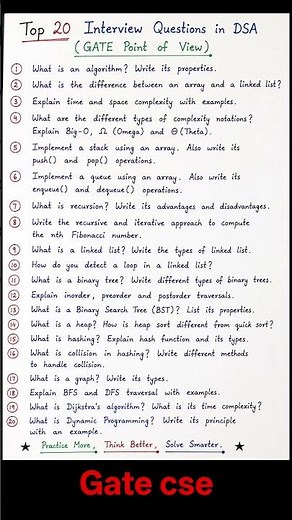 Top 20 Interview Questions in DSA
(GATE Point of View)
1 What is an algorithm? Write its properties.
2 What is the difference between an array and a linked list?
3 Explain time and space complexity with examples.
4 What are the different types of complexity notations?
Explain Big-O, Ω (Omega) and Θ (Theta).
5 Implement a stack using an array. Also write its
push() and pop() operations.
6 Implement a queue using an array. Also write its
enqueue() and dequeue() operations.
7 What is recursion? Write its advantages and disadvantages.
8 Write the recursive and iterative approach to compute
the nth Fibonacci number.
9 What is a linked list? Write the types of linked list.
10 How do you detect a loop in a linked list?
11 What is a binary tree? Write different types of binary trees.
12 Explain inorder, preorder and postorder traversals.
13 What is a Binary Search Tree (BST)? List its properties.
14 What is a heap? How is heap sort different from quick sort?
15 What is hashing? Explain hash function and its types.
16 What is collision in hashing? Write different methods
to handle collision.
17 What is a graph? Write its types.
18 Explain BFS and DFS traversal with examples.
19 What is Dijkstra's algorithm? What is its time complexity?
20 What is Dynamic Programming? Write its principle
with an example.
★ Practice More, Think Better, Solve Smarter. ★
Gate cse